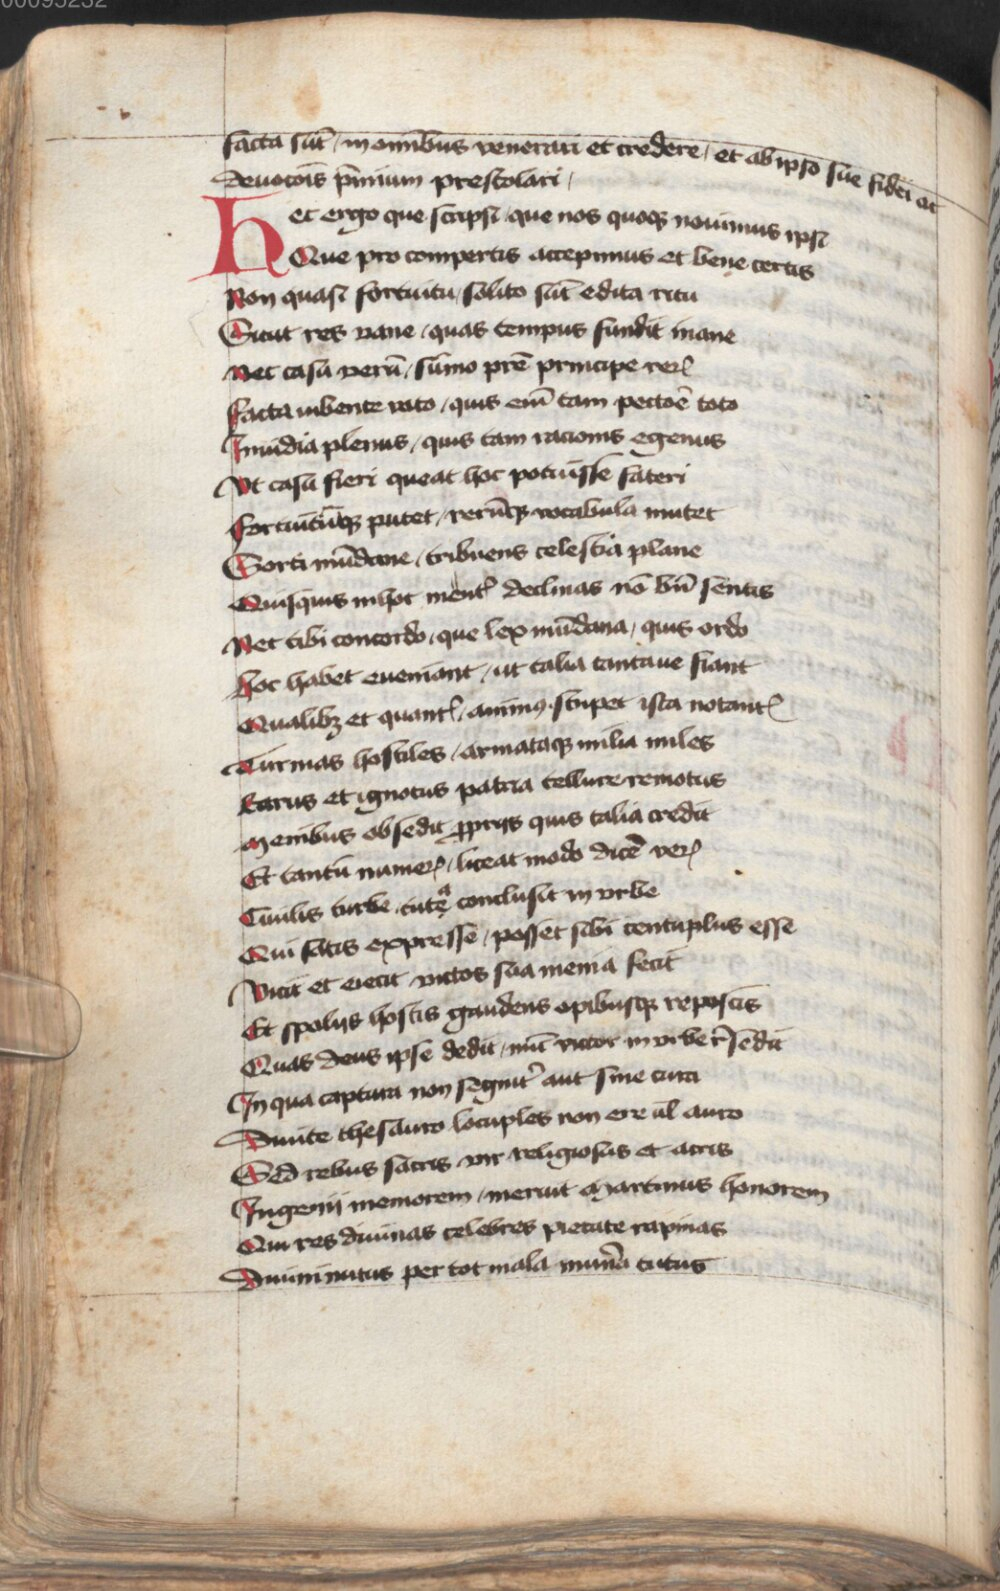 00095232
facta sūt / in omībus venerari et credere / et ab ipso sue fidei ac
deuocōis p̄mium prestolari /
Hec ergo que scripsi / que nos quoqꝫ nouimus ipsi
Que pro compertis accepimus et bene certis
Non quasi fortuitu / solito sūt edita ritu
Sicut res vane / quas tempus fundit inane
Nec casu verū / sūmo p̄re principe reꝝ
Facta iubente rato / quis enī tam pectoē toto
Inuidia plenus / quis tam racionis egenus
Vt casu fieri queat hoc potuisse fateri
Fortuitūqꝫ putet / rerūqꝫ vocabula mutet
Sorti mūdane / tribuens celestia plane
Quisquis in hoc mentꝭ declinas nō bn̄ sentis
Nec tibi concordo / que lex mūdana / quis ordo
Hoc habet eueniant / ut talia tantaue fiant
Qualibꝫ et quantꝭ / animꝰ stupet ista notantꝭ
Turmas hostiles / armataqꝫ milia miles
Rarus et ignotus patria tellure remotus
Menibus obsedit ꝓprijs quis talia credit
Et tantū numeꝝ / liceat modo dicē veꝝ
Ciuilis turbe conclusit in vrbe
Qui satis expresse / posset sibi centuplus esse
Vicit et eiecit victos sua menia fecit
Et spolijs hostis gaudens opibusqꝫ repostis
Quas deus ipse dedit / nūc victor in vrbe r̄sedit
In qua captura non segnit̄ aut sine cura
Diuite thesauro locuples non ere ul̄ auro
Sed rebus sacris vir religiosus et acris
Ingenij memorem / meruit Martinus honorem
Qui res diuinas celebres pietate rapinas
Diuini nutus per tot mala mun̄a tutus